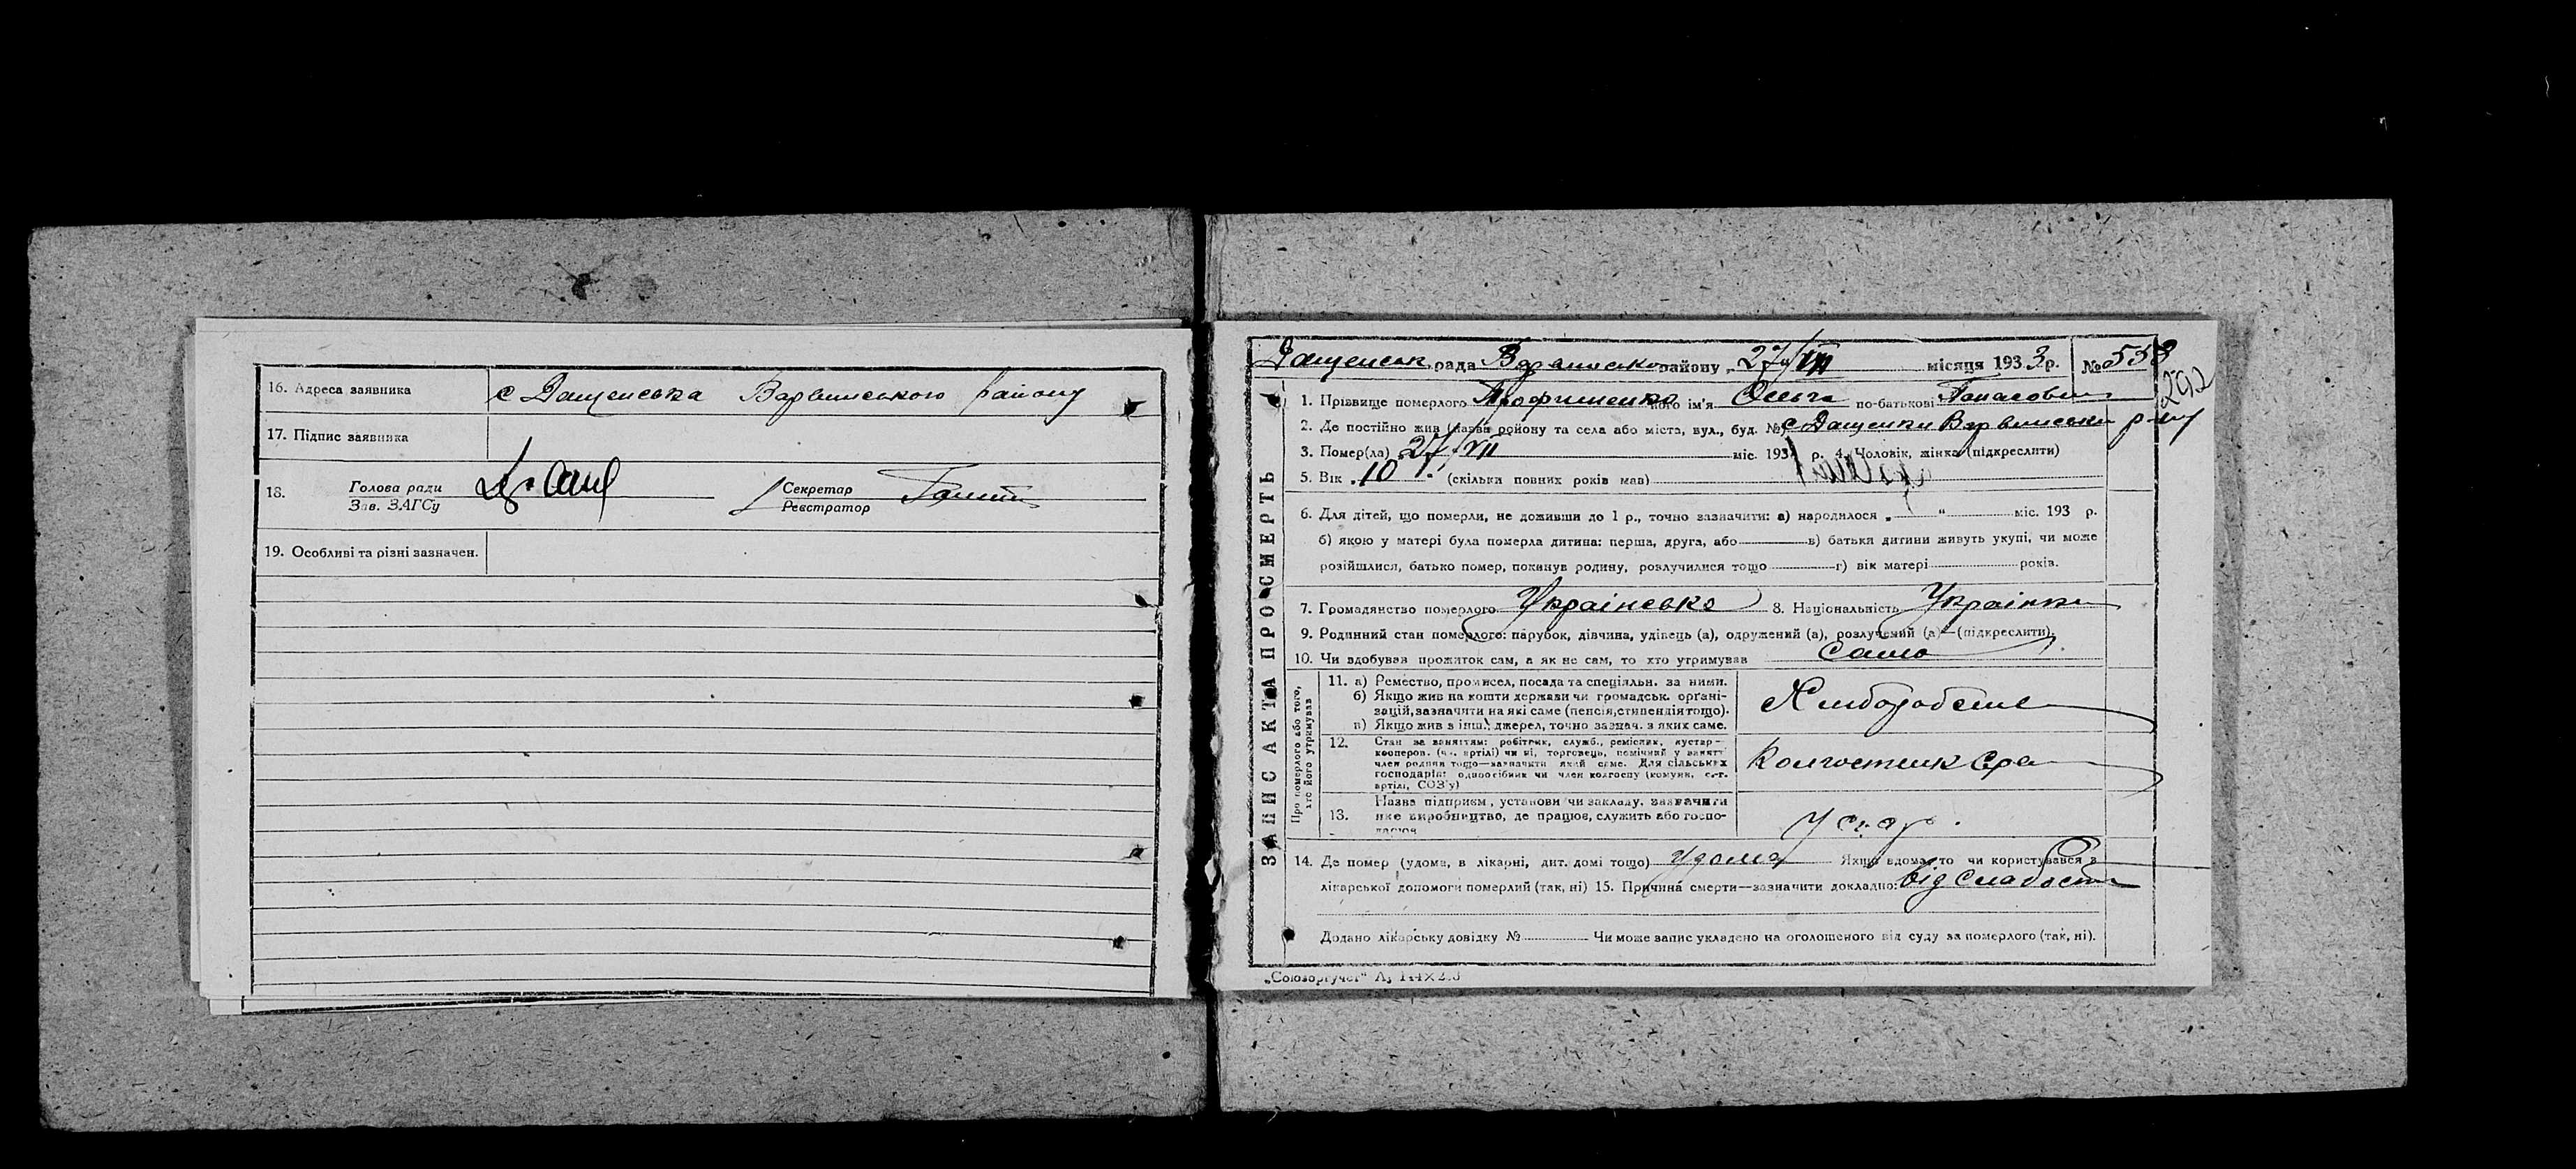 16. Адреса заявника с Дащенська Варвинського району
17. Підпис заявника
18. Голова ради
Зав. ЗАГСу
Секретар
Реєстратор
19. Особливі та різні зазначен.
ЗАПИС АКТА ПРО СМЕРТЬ
Дащенськ рада Варвинсько району „27/VII місяця 1933 р. № 558
292
1. Прізвище померлого його ім'я Ольга по-батькові Панасовн
2. Де постійно жив (назва району та села або міста, вул., буд. №) с Дащенки Варвинськи р-ну
3. Помер(ла) „27/VII міс. 193 р. 4. Чоловік, жінка (підкреслити)
5. Вік „10" (скільки повних років мав)
6. Для дітей, що померли, не доживши до 1 р., точно зазначити: а) народилося „ " міс. 193 р.
б) якою у матері була померла дитина: перша, друга, або в) батьки дитини живуть укупі, чи може
розійшлися, батько помер, покинув родину, розлучилися тощо г) вік матері років.
7. Громадянство померлого Українське 8. Національність Українка
9. Родинний стан померлого: парубок, дівчина, удівець (а), одружений (а), розлучений (а)—(підкреслити).
10. Чи здобував прожиток сам, а як не сам, то хто утримував Само
Про померлого або того,
хто його утримував
11. а) Ремество, промисел, посада та спеціяльн. за ними.
б) Якщо жив на кошти держави чи громадськ. органі-
зацій, зазначити на які саме (пенсія, стипендія тощо).
в) Якщо жив з інш. джерел, точно зазнач. з яких саме.
12. Стан за заняттям: робітник, служб., ремісник, кустар—
кооперов. (чл. артілі) чи ні, торговець, помічний у занятт
член родини тощо—зазначити який саме. Для сільських
господарів: одноосібник чи член колгоспу (комуни, с.-г.
артілі, СОЗ'у)
13. Назва підприєм., установи чи закладу, зазначити
яке виробництво, де працює, служить або госпо-
дарює
14. Де помер (удома, в лікарні, дит. домі тощо) удома Якщо вдома, то чи користувався з
лікарської допомоги померлий (так, ні) 15. Причина смерти—зазначити докладно: від слабости
Додано лікарську довідку № Чи може запис укладено на оголошеного від суду за померлого (так, ні).
„Союзоргучет"